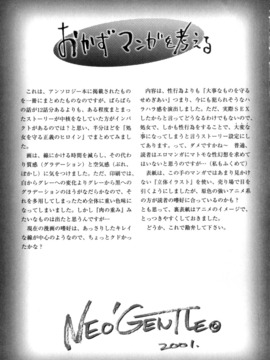 おかずマンガを考える
これは、アンソロジー本に掲載されたもの
を一冊にまとめたものなのですが、ばらばら
の話が12話分あるよりも、ある程度まとまっ
たストーリーが中核をしていた方がインパ
クトがあるのでは?と思い、半分ほどを「処
女を守る正義のヒロイン」でまとめてみまし
た。
画は、線にかける時間を減らし、その代わ
り質感(グラデーション)と空気感(ぷん、
ぽかし)に気をつけました。ただ、印刷では、
白からグレーへの変化よりグレーから黒への
グラデーションのほうがなだらかなので、そ
れを多用してしまったため全体に重い色味に
なってしまいました。しかし「肉の重み」み
たいなものは出たと思うんですが…
現在の漫画の嗜好は、あっさりしたキレイ
な線が中心のようなので、ちょっとクドかっ
たかな!
内容は、性行為よりも「大事なものを守る
せめぎあい」つまり、今にも犯られそうなハ
ラハラ感を演出しました。ただ、実際SEX
したからと言ってどうなるわけでもないので、
処女で、しかも性行為をすることで、大変な
事になってしまうと言うストーリー設定にし
てあります。って、ダメですかねー 普通、
読者はエロマンガにマトモな性幻想を求めて
はいないと思うのですが…(私もふくめて)
表紙は、この手のマンガではあまり見かけ
ない「立体イラスト」を使い、売り場で目を
引くようにしましたが、原色の強いアニメ系
の方が読者の嗜好に合っているのかも!
とも思って、裏表紙はアニメのイメージで、
とっつきやすくしておきました。
どうか、これで勘弁して下さい。
NEO'GENTLE
2001.